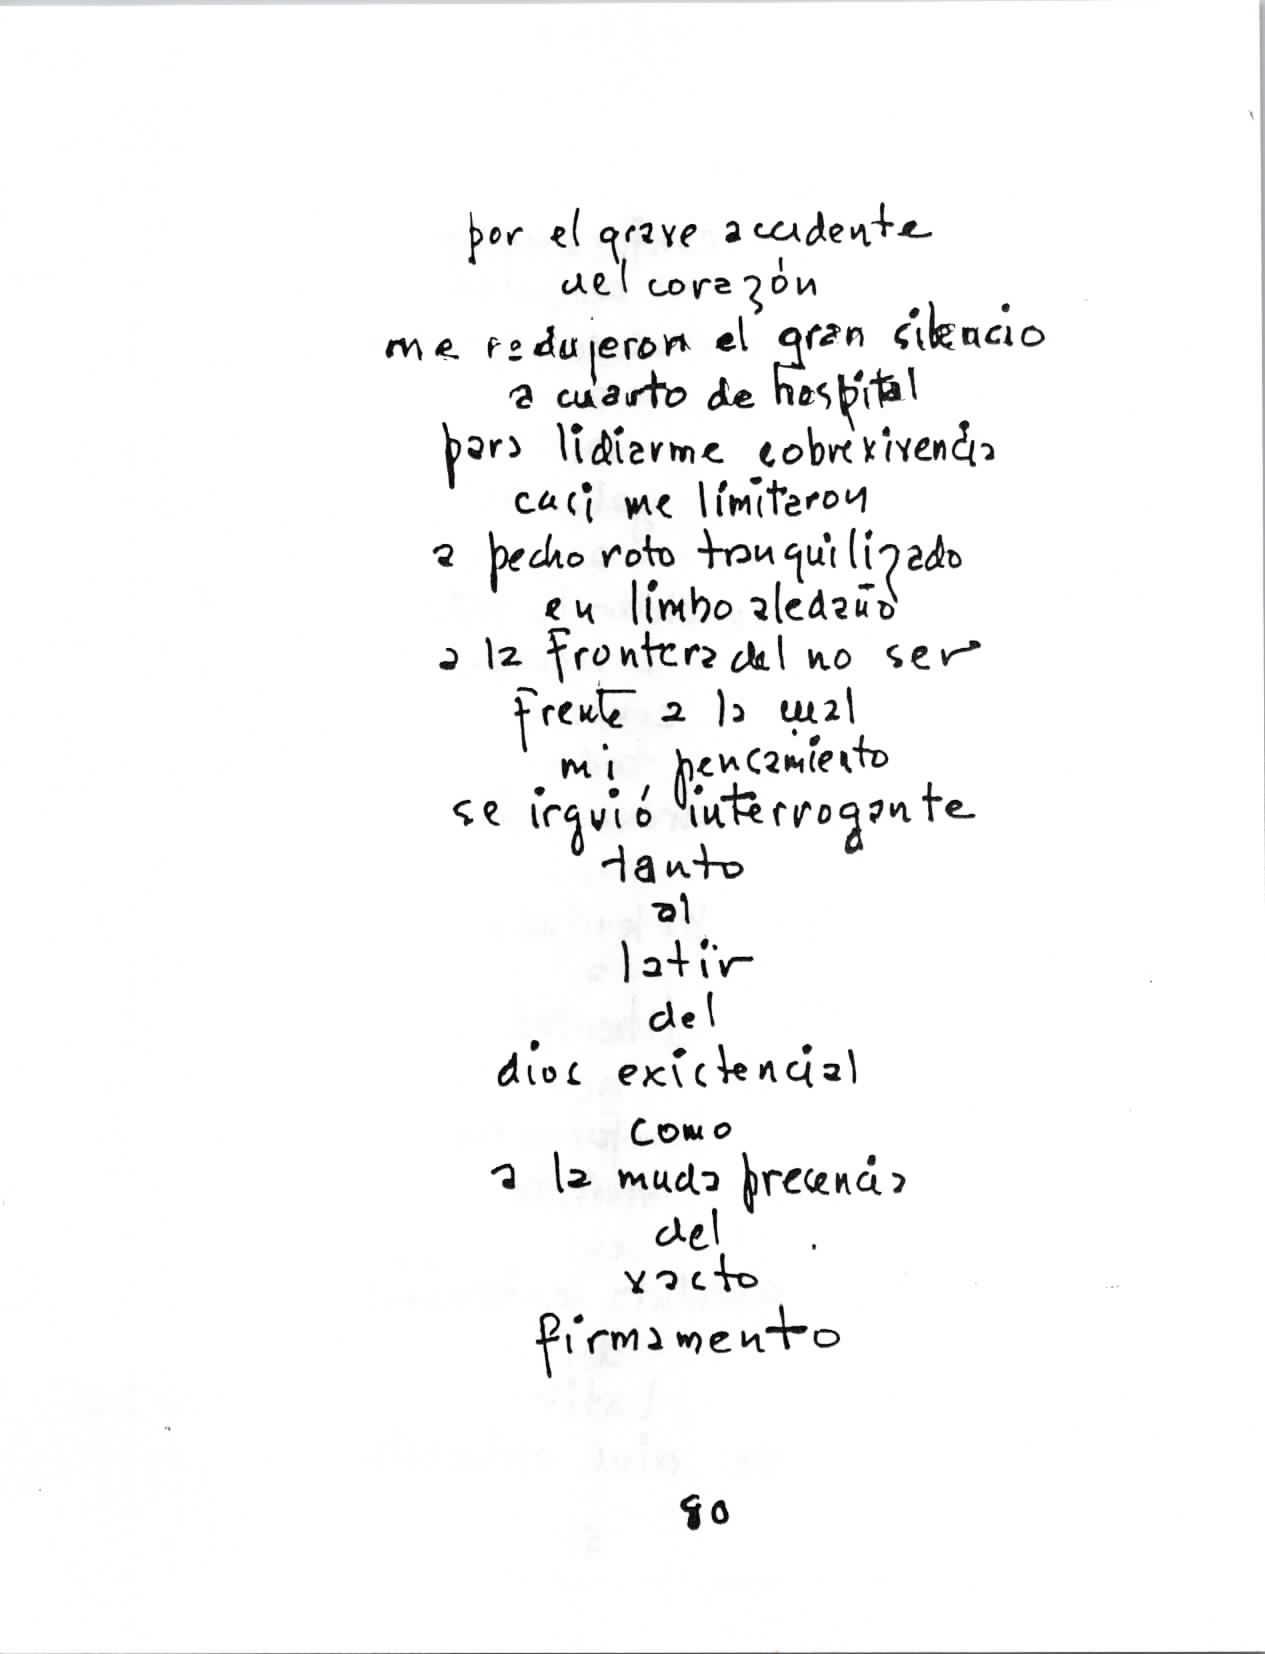 por el grave accidente
del corazón
me redujeron el gran silencio
a cuarto de hospital
para lidiarme sobrevivencia
casi me limitaron
a pecho roto tranquilizado
en limbo aledaño
a la frontera del no ser
frente a la cual
mi pensamiento
se irguió interrogante
tanto
al
latir
del
dios existencial
como
a la muda presencia
del
vasto
firmamento
80